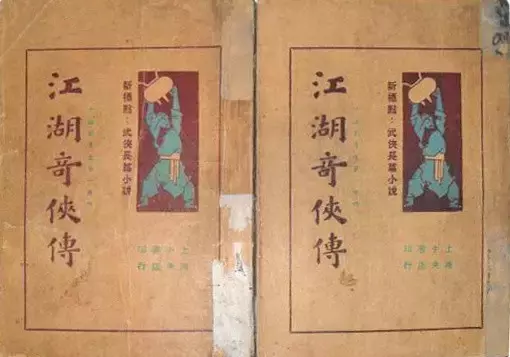 新標點：武俠長篇小說
江湖奇俠傳
上海
中央
書店
印行
新標點：武俠長篇小說
江湖奇俠傳
上海
中央
書店
印行